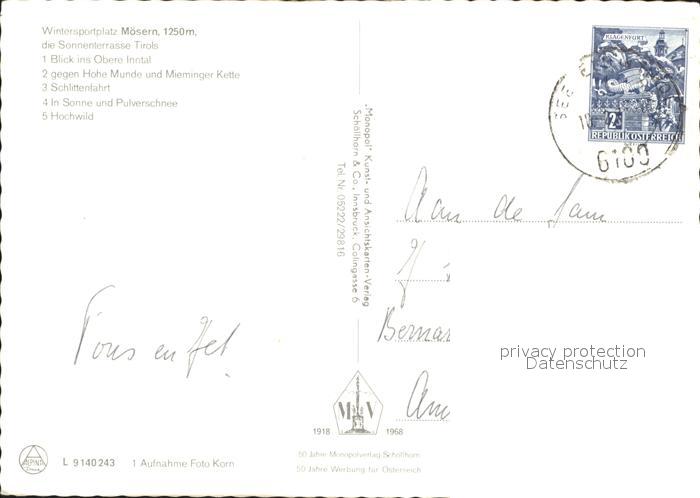 Wintersportplatz Mösern, 1250m,
die Sonnenterrasse Tirols
1 Blick ins Obere Inntal
2 gegen Hohe Munde und Mieminger Kette
3 Schlittenfahrt
4 In Sonne und Pulverschnee
5 Hochwild
„Monopol" Kunst- und Ansichtskarten-Verlag
Schöllhorn & Co., Innsbruck, Colingasse 6
Tel. Nr. 05222/29816
KLAGENFURT
2
REPUBLIK ÖSTERREICH
6100
Aan de Fam
Bernar
Am
privacy protection
Datenschutz
M V
1918 1968
50 Jahre Monopolverlag Schöllhorn
50 Jahre Werbung für Österreich
ALPINA
L 9140243 1 Aufnahme Foto Korn